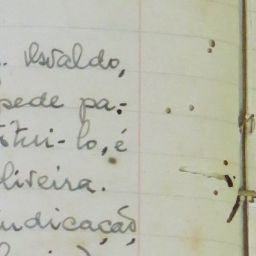 . Osvaldo,
pede pa:
titui-lo, é
liveira.
indicação